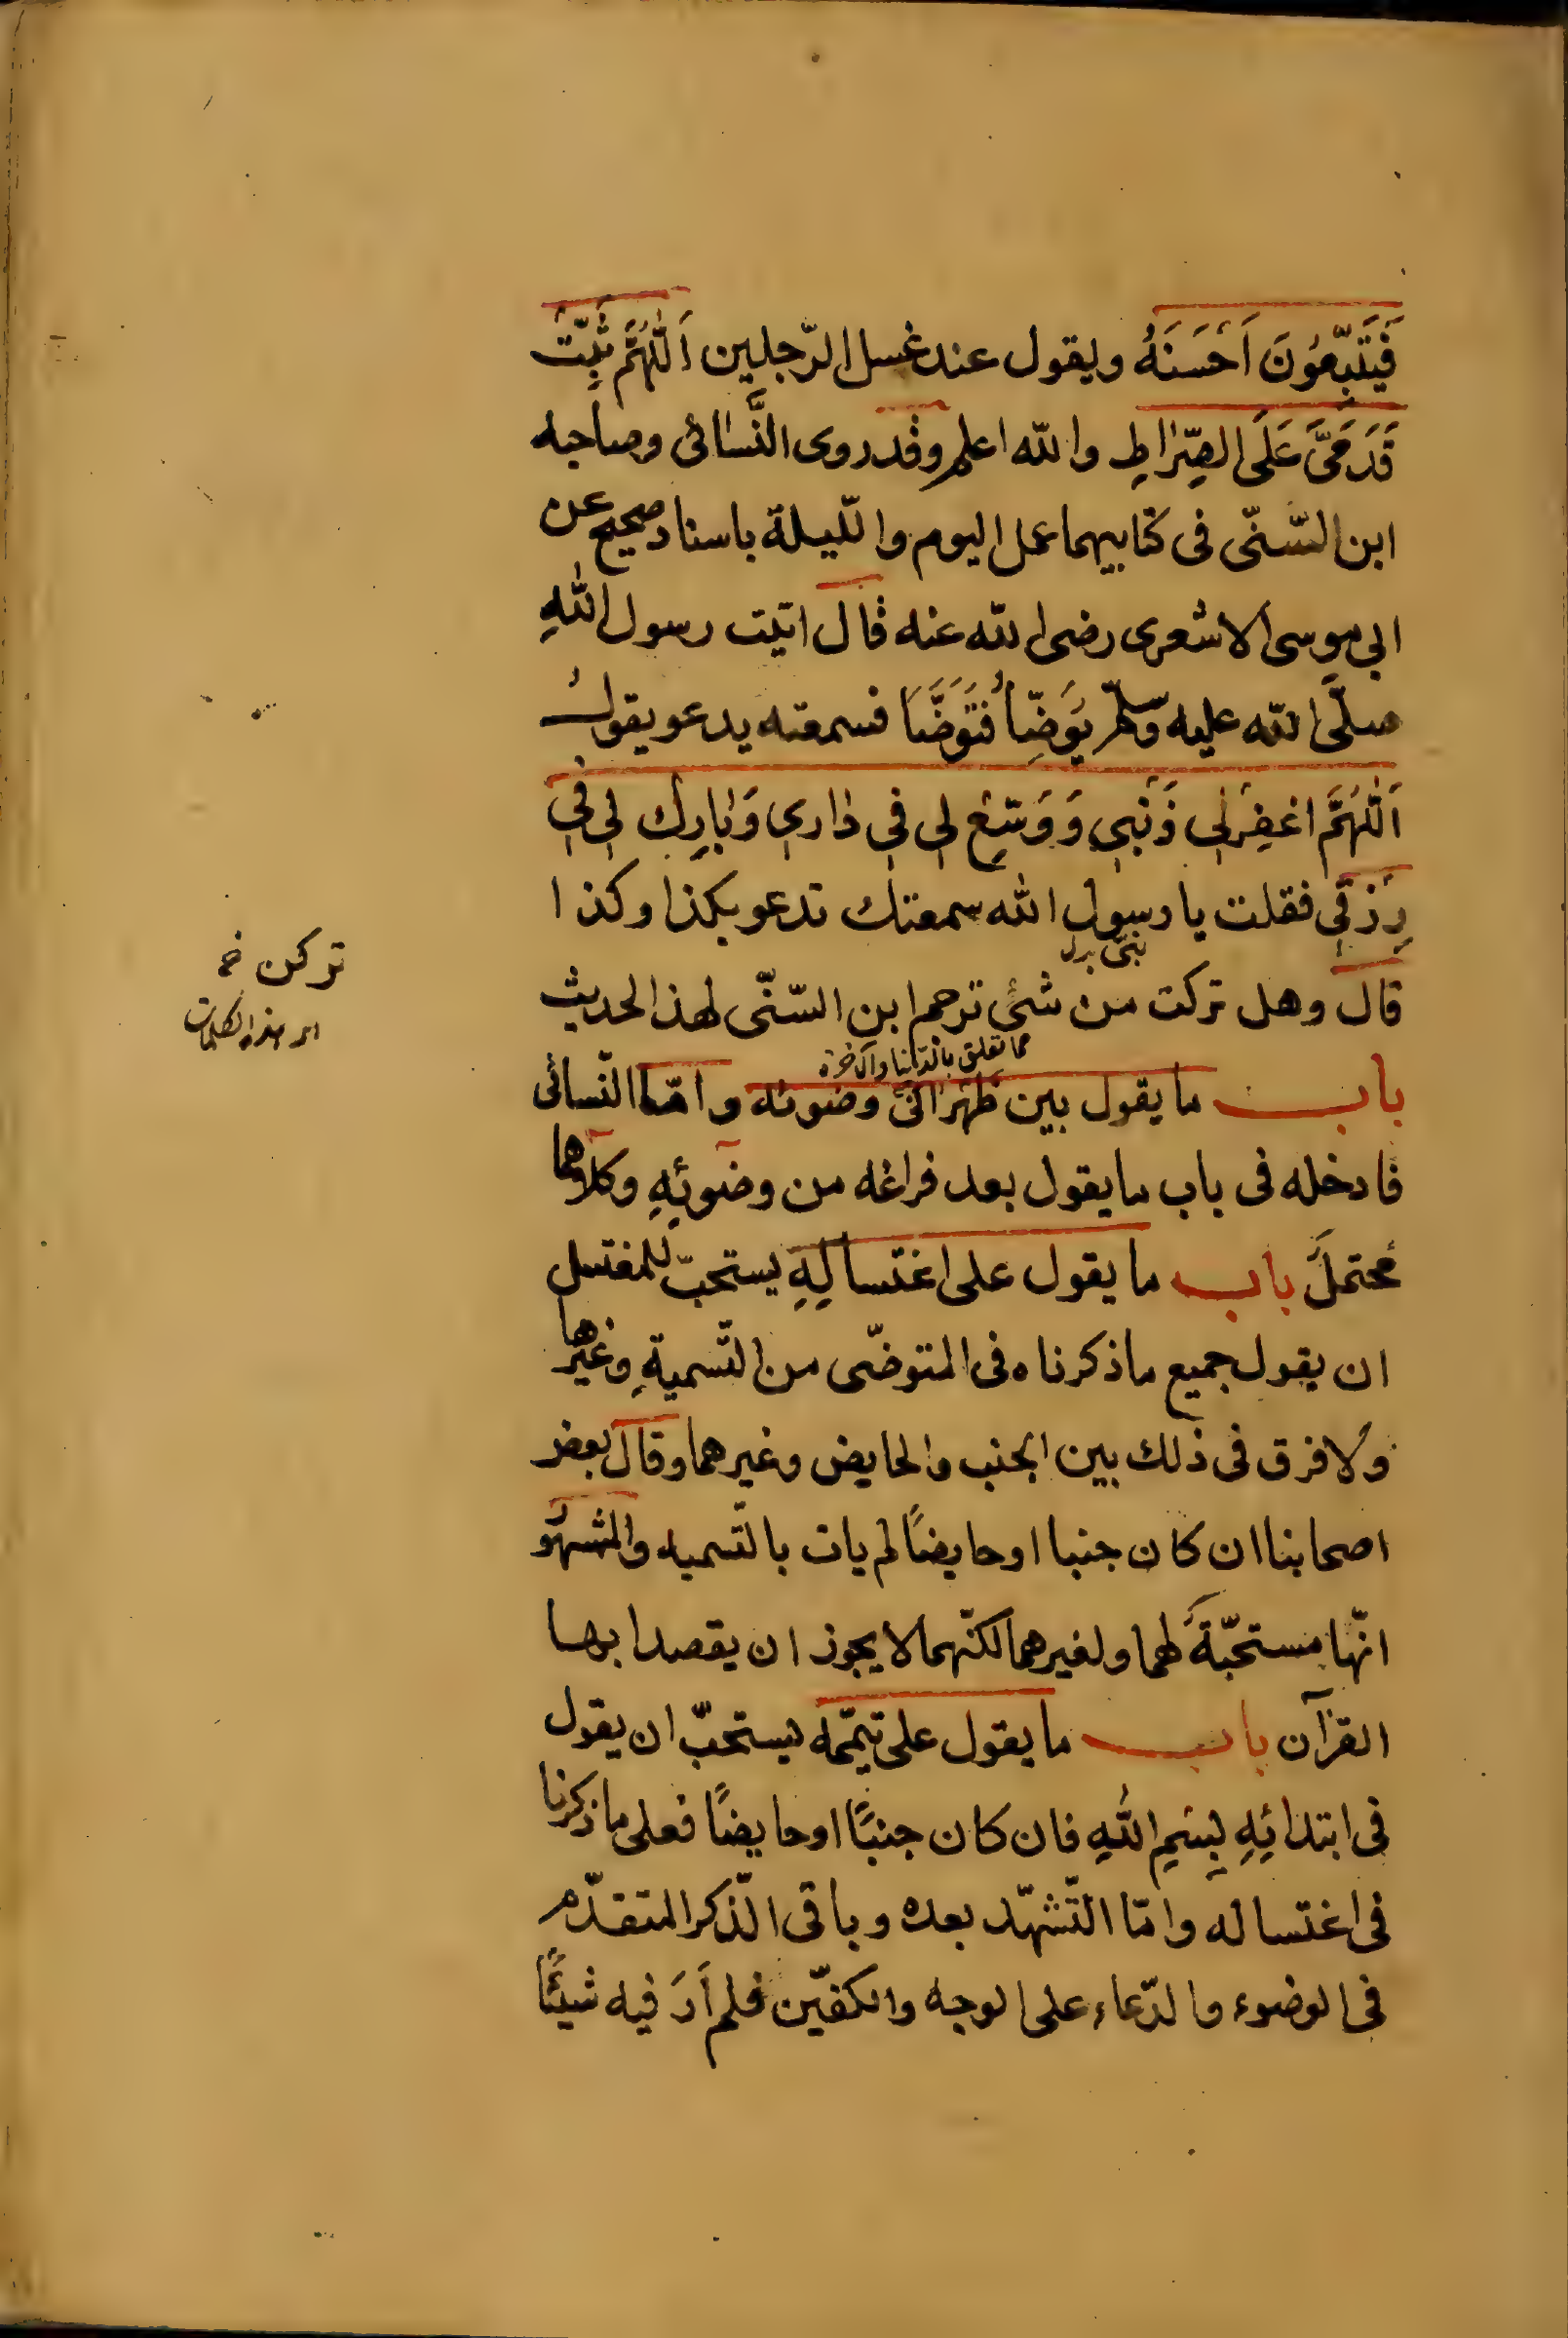 فَيَتَّبِعُونَ اَحْسَنَهُ ويقول عند غسل الرّجلين اَللّٰهُمَّ ثَبِّتْ
قَدَمَيَّ عَلَى الصِّرٰاطِ والله اعلم وقد روى النَّسائى وصاحبه
ابن السّنّى فى كتابيهما عمل اليوم والّليلة باسناد صحيح عن
ابى موسى الاشعرى رضى الله عنه قال اتيت رسول اللهِ
صلّى الله عليه وسلّم بِوَضُوءٍ فَتَوَضَّأَ فسمعته يدعو يقول
اَللّٰهُمَّ اغْفِرْلى ذَنْبى وَوَسِّعْ لى فى دٰارى وَبٰارِكْ لى فى
رِزْقى فقلت يا رسول الله سمعتك تدعو بكذا وكذا
نبىّ بدل
قال وهل تركت من شئ ترجم ابن السّنّى لهذا الحديث
تركن خ
اى هذه الكلمات
مما تعلق بالدّنيا والآخرة
باب ما يقول بين ظهرانى وضوئه وامّا النّسائى
فادخله فى باب ما يقول بعد فراغه من وضوئِهِ وكلاهما
محتملٌ باب ما يقول على اغتسالِهِ يستحبّ للمغتسل
ان يقول جميع ما ذكرناه فى المتوضّى من التّسميةِ وغيرها
ولا فرق فى ذلك بين الجنب والحايض وغيرهما وقال بعض
اصحابنا ان كان جنبا او حايضًا لم يات بالتّسميه والمشهو
انّها مستحبّةٌ لهما ولغيرهما لكنّهما لا يجوز ان يقصدا بها
القرآن باب ما يقول على تيمّمه يستحبّ ان يقول
فى ابتدائِهِ بِسْمِ اللهِ فان كان جنبًا او حايضًا فعلى ما ذكرنا
فى اغتساله وامّا التّشهّد بعده وباقى الذّكر المتقدّم
فى الوضوء والدّعاء على الوجه والكفّين فلم اَرَ فيه شيئًا